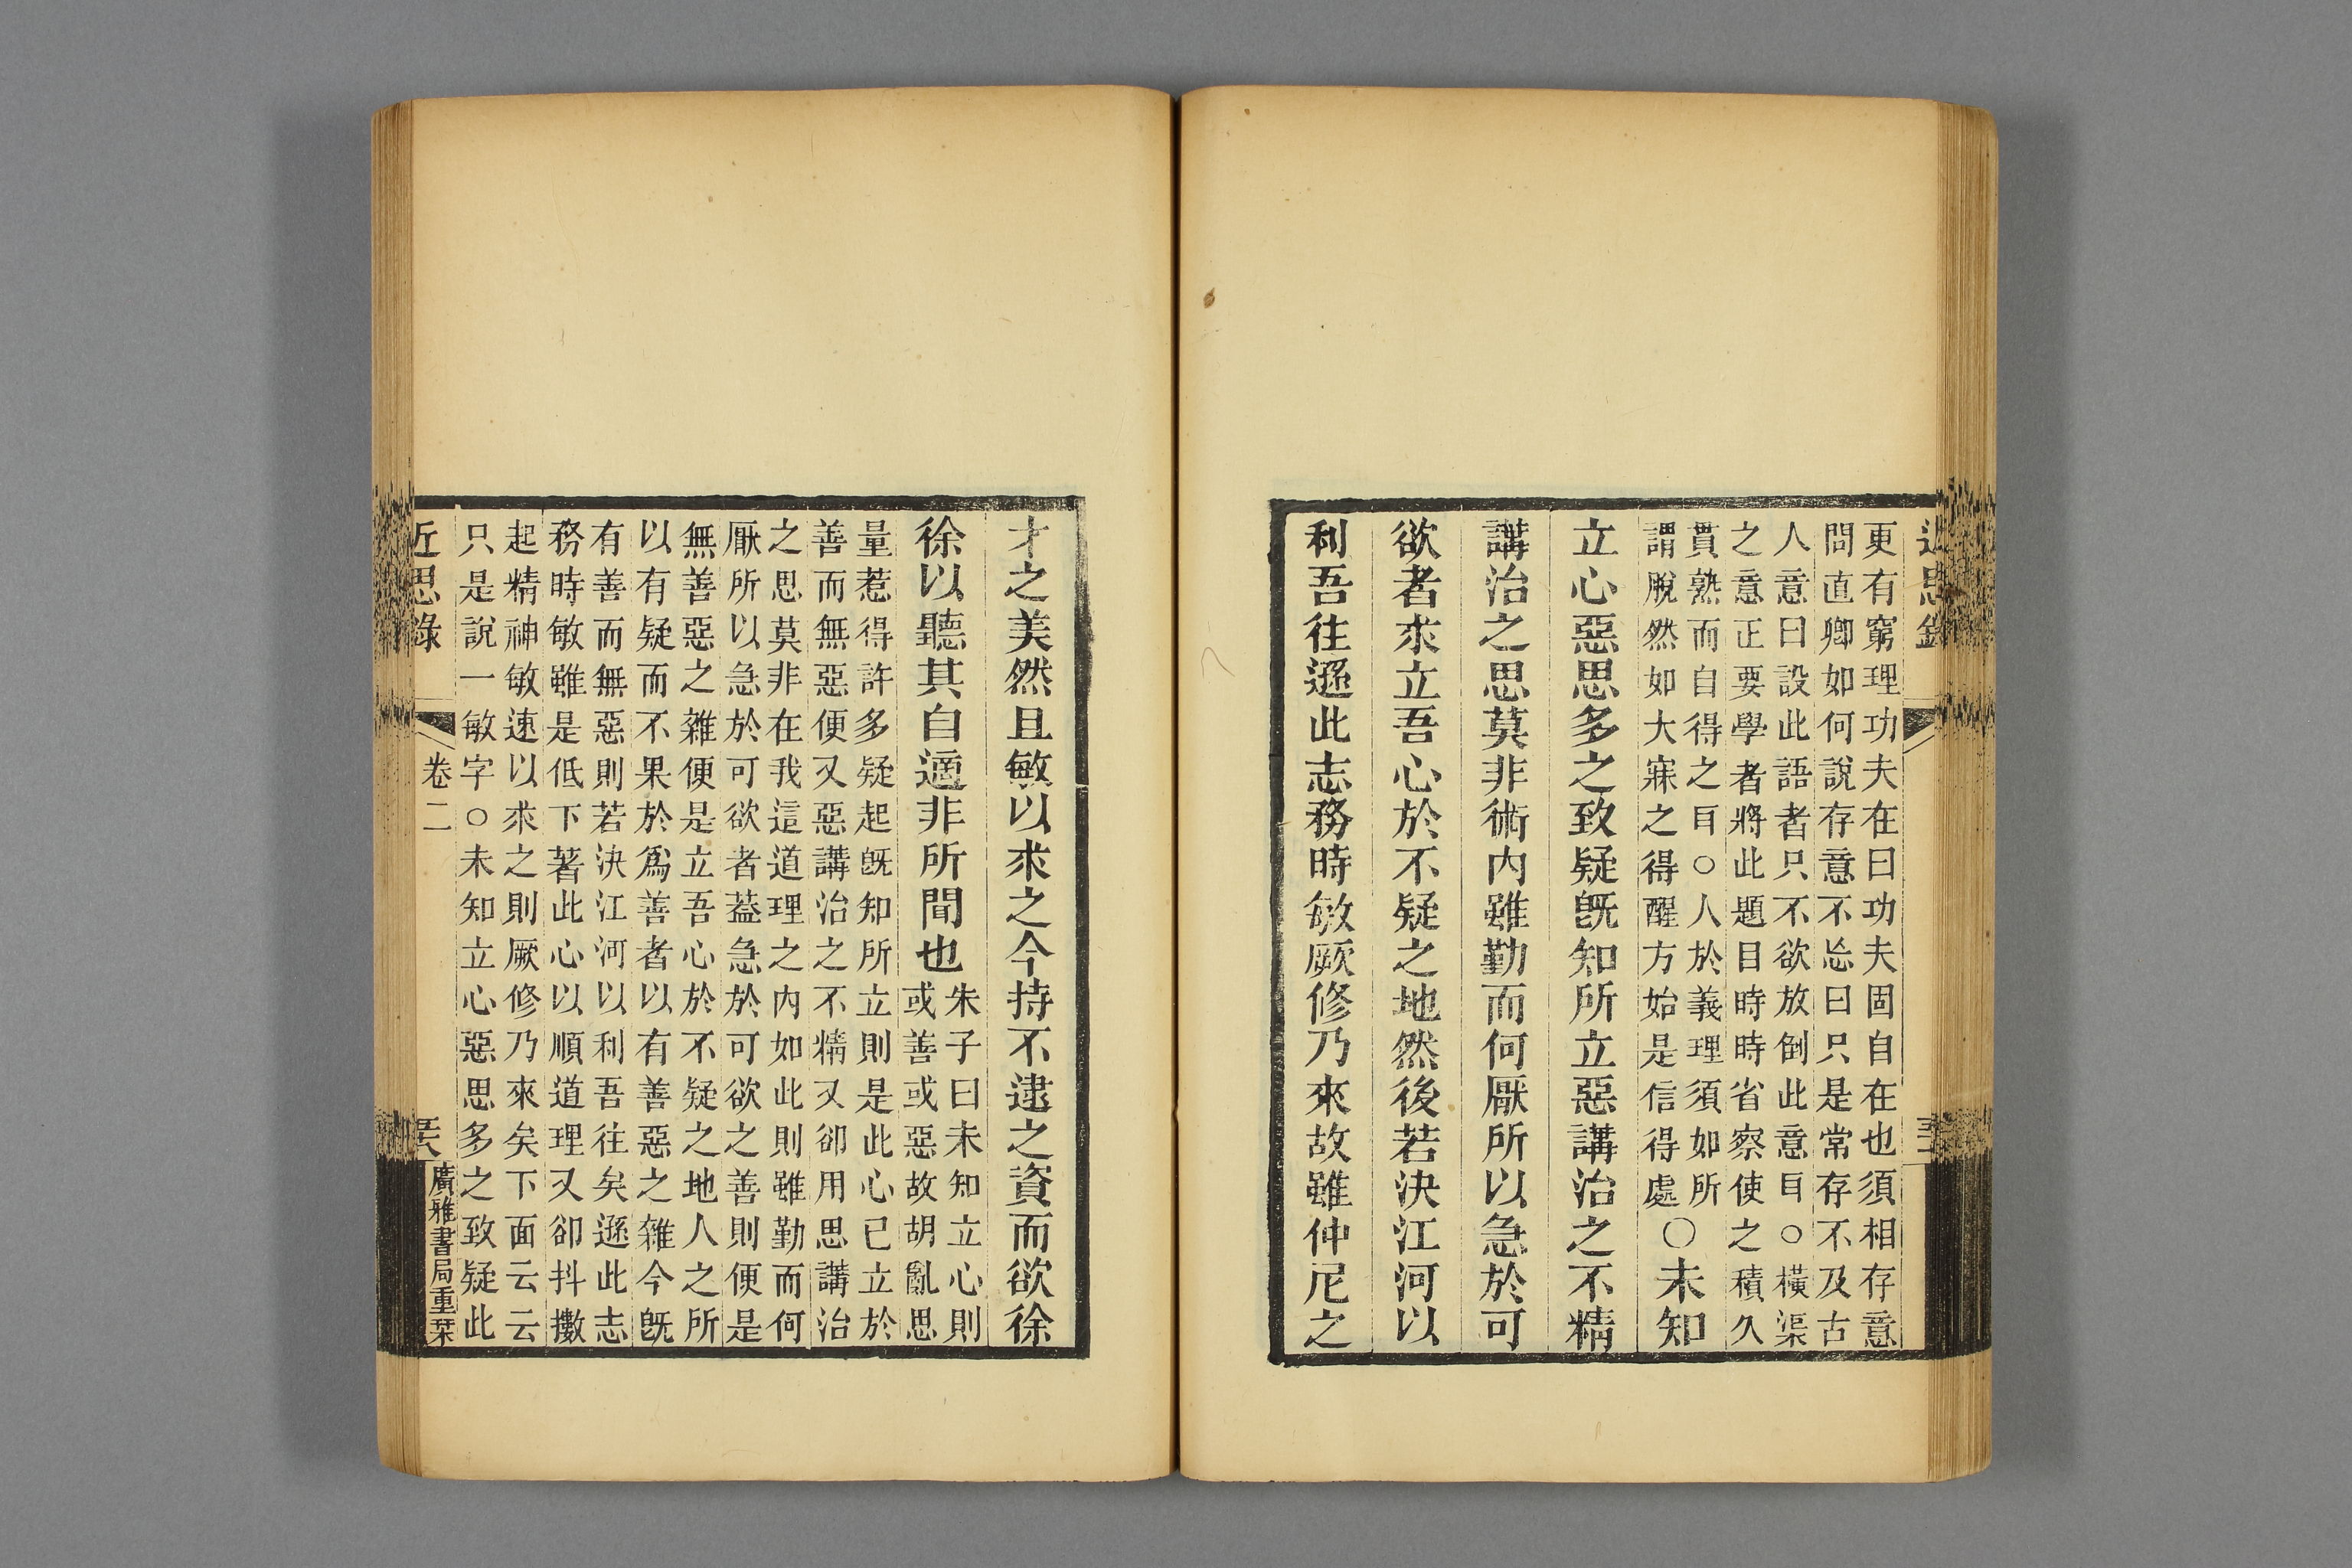 更有窮理功夫在曰功夫固自在也須相存意
問直卿如何說存意不忘曰只是常存不及古
人意曰設此語者只不欲放倒此意耳○橫渠
之意正要學者將此題目時時省察使之積久
貫熟而自得之耳○人於義理須如所
謂脫然如大寐之得醒方始是信得處
○未知
立心惡思多之致疑旣知所立惡講治之不精
講治之思莫非術內雖勤而何厭所以急於可
欲者求立吾心於不疑之地然後若決江河以
利吾往遜此志務時敏厥修乃來故雖仲尼之
才之美然且敏以求之今持不逮之資而欲徐
徐以聽其自適非所聞也
朱子曰未知立心則
或善或惡故胡亂思
量惹得許多疑起旣知所立則是此心已立於
善而無惡便又惡講治之不精又卻用思講治
之思莫非在我這道理之內如此則雖勤而何
厭所以急於可欲者蓋急於可欲之善則便是
無善惡之雜便是立吾心於不疑之地人之所
以有疑而不果於爲善者以有善惡之雜今旣
有善而無惡則若決江河以利吾往矣遜此志
務時敏雖是低下著此心以順道理又卻抖擻
起精神敏速以求之則厥修乃來矣下面云云
只是說一敏字○未知立心惡思多之致疑此
近思錄
卷二
廣雅書局重栞